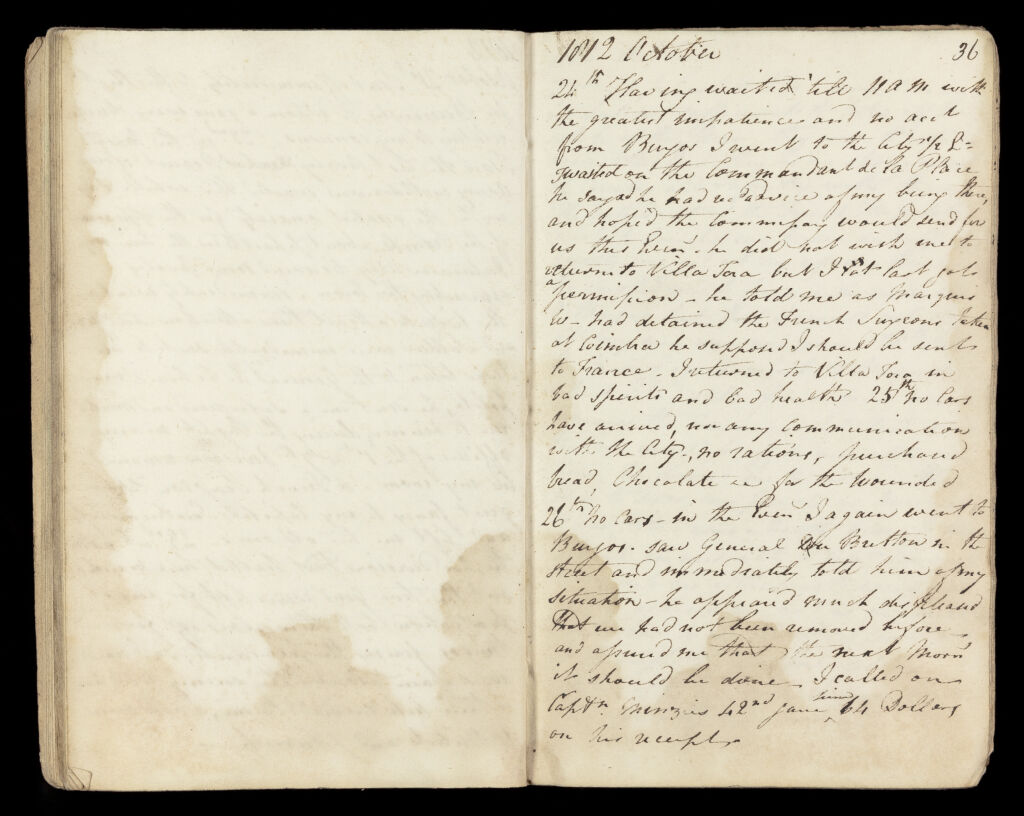 1812 October 36
24th Having waited till 11 a m with
the greatest impatience and no acct
from Burgos I went to the City
waited on the Commandant de la Place
he sayed he had no advice of my being there,
and hoped the Commissary would send for
us this Even - he did not wish me to
return to Villa Tora but I at last got
a permission - he told me as Marquis
W- had detained the French Surgeons taken
at Coimbra he supposed I should be sent
to France - I returned to Villa Tora in
bad spirits and bad health 25th no Cars
have arrived, nor any communication
with the City -, no rations, purchased
bread, Chocolate &c for the wounded
26th No Cars - in the Even I again went to
Burgos - saw General Bretton in the
street and immediately told him of my
situation - he appeared much displeased
that we had not been removed before
and assured me that the next Morn
it should be done - I called on
Captn Minzies 42nd gave him 64 Dollars
on his receipt -